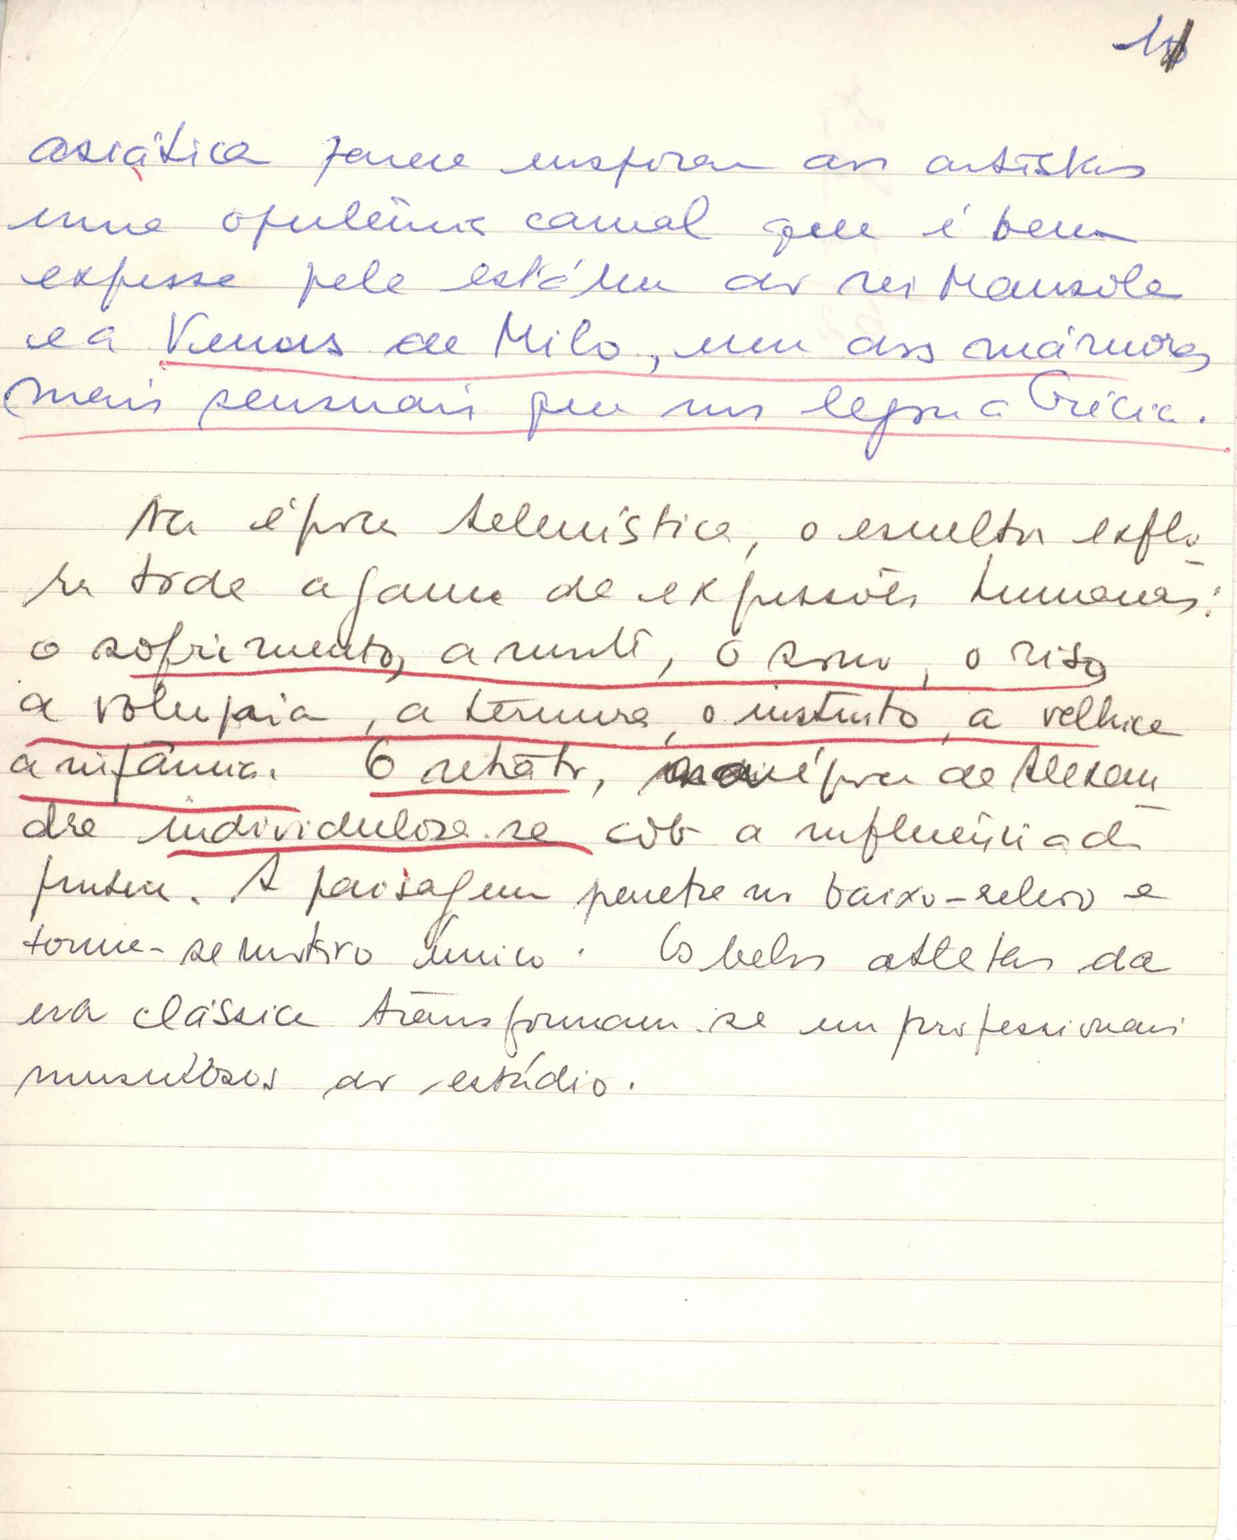 asiática parece inspirar aos artistas
uma opulência carnal que é bem
expressa pela estátua do rei Mausole
e a Venus de Milo, um dos mármores
mais sensuais que nos legou a Grécia.
Na época helenística, o escultor explo
ra toda a gama de expressões humanas:
o sofrimento, a morte, o sono, o riso,
a volupia, a ternura, o instinto, a velhice
a infância. O retrato, na época de Alexan
dre individualiza-se sob a influência d
A paisagem penetra no baixo-relevo e
torna-se motivo único. Os belos atletas da
era clássica transformam-se em professionais
musculosos do estádio.